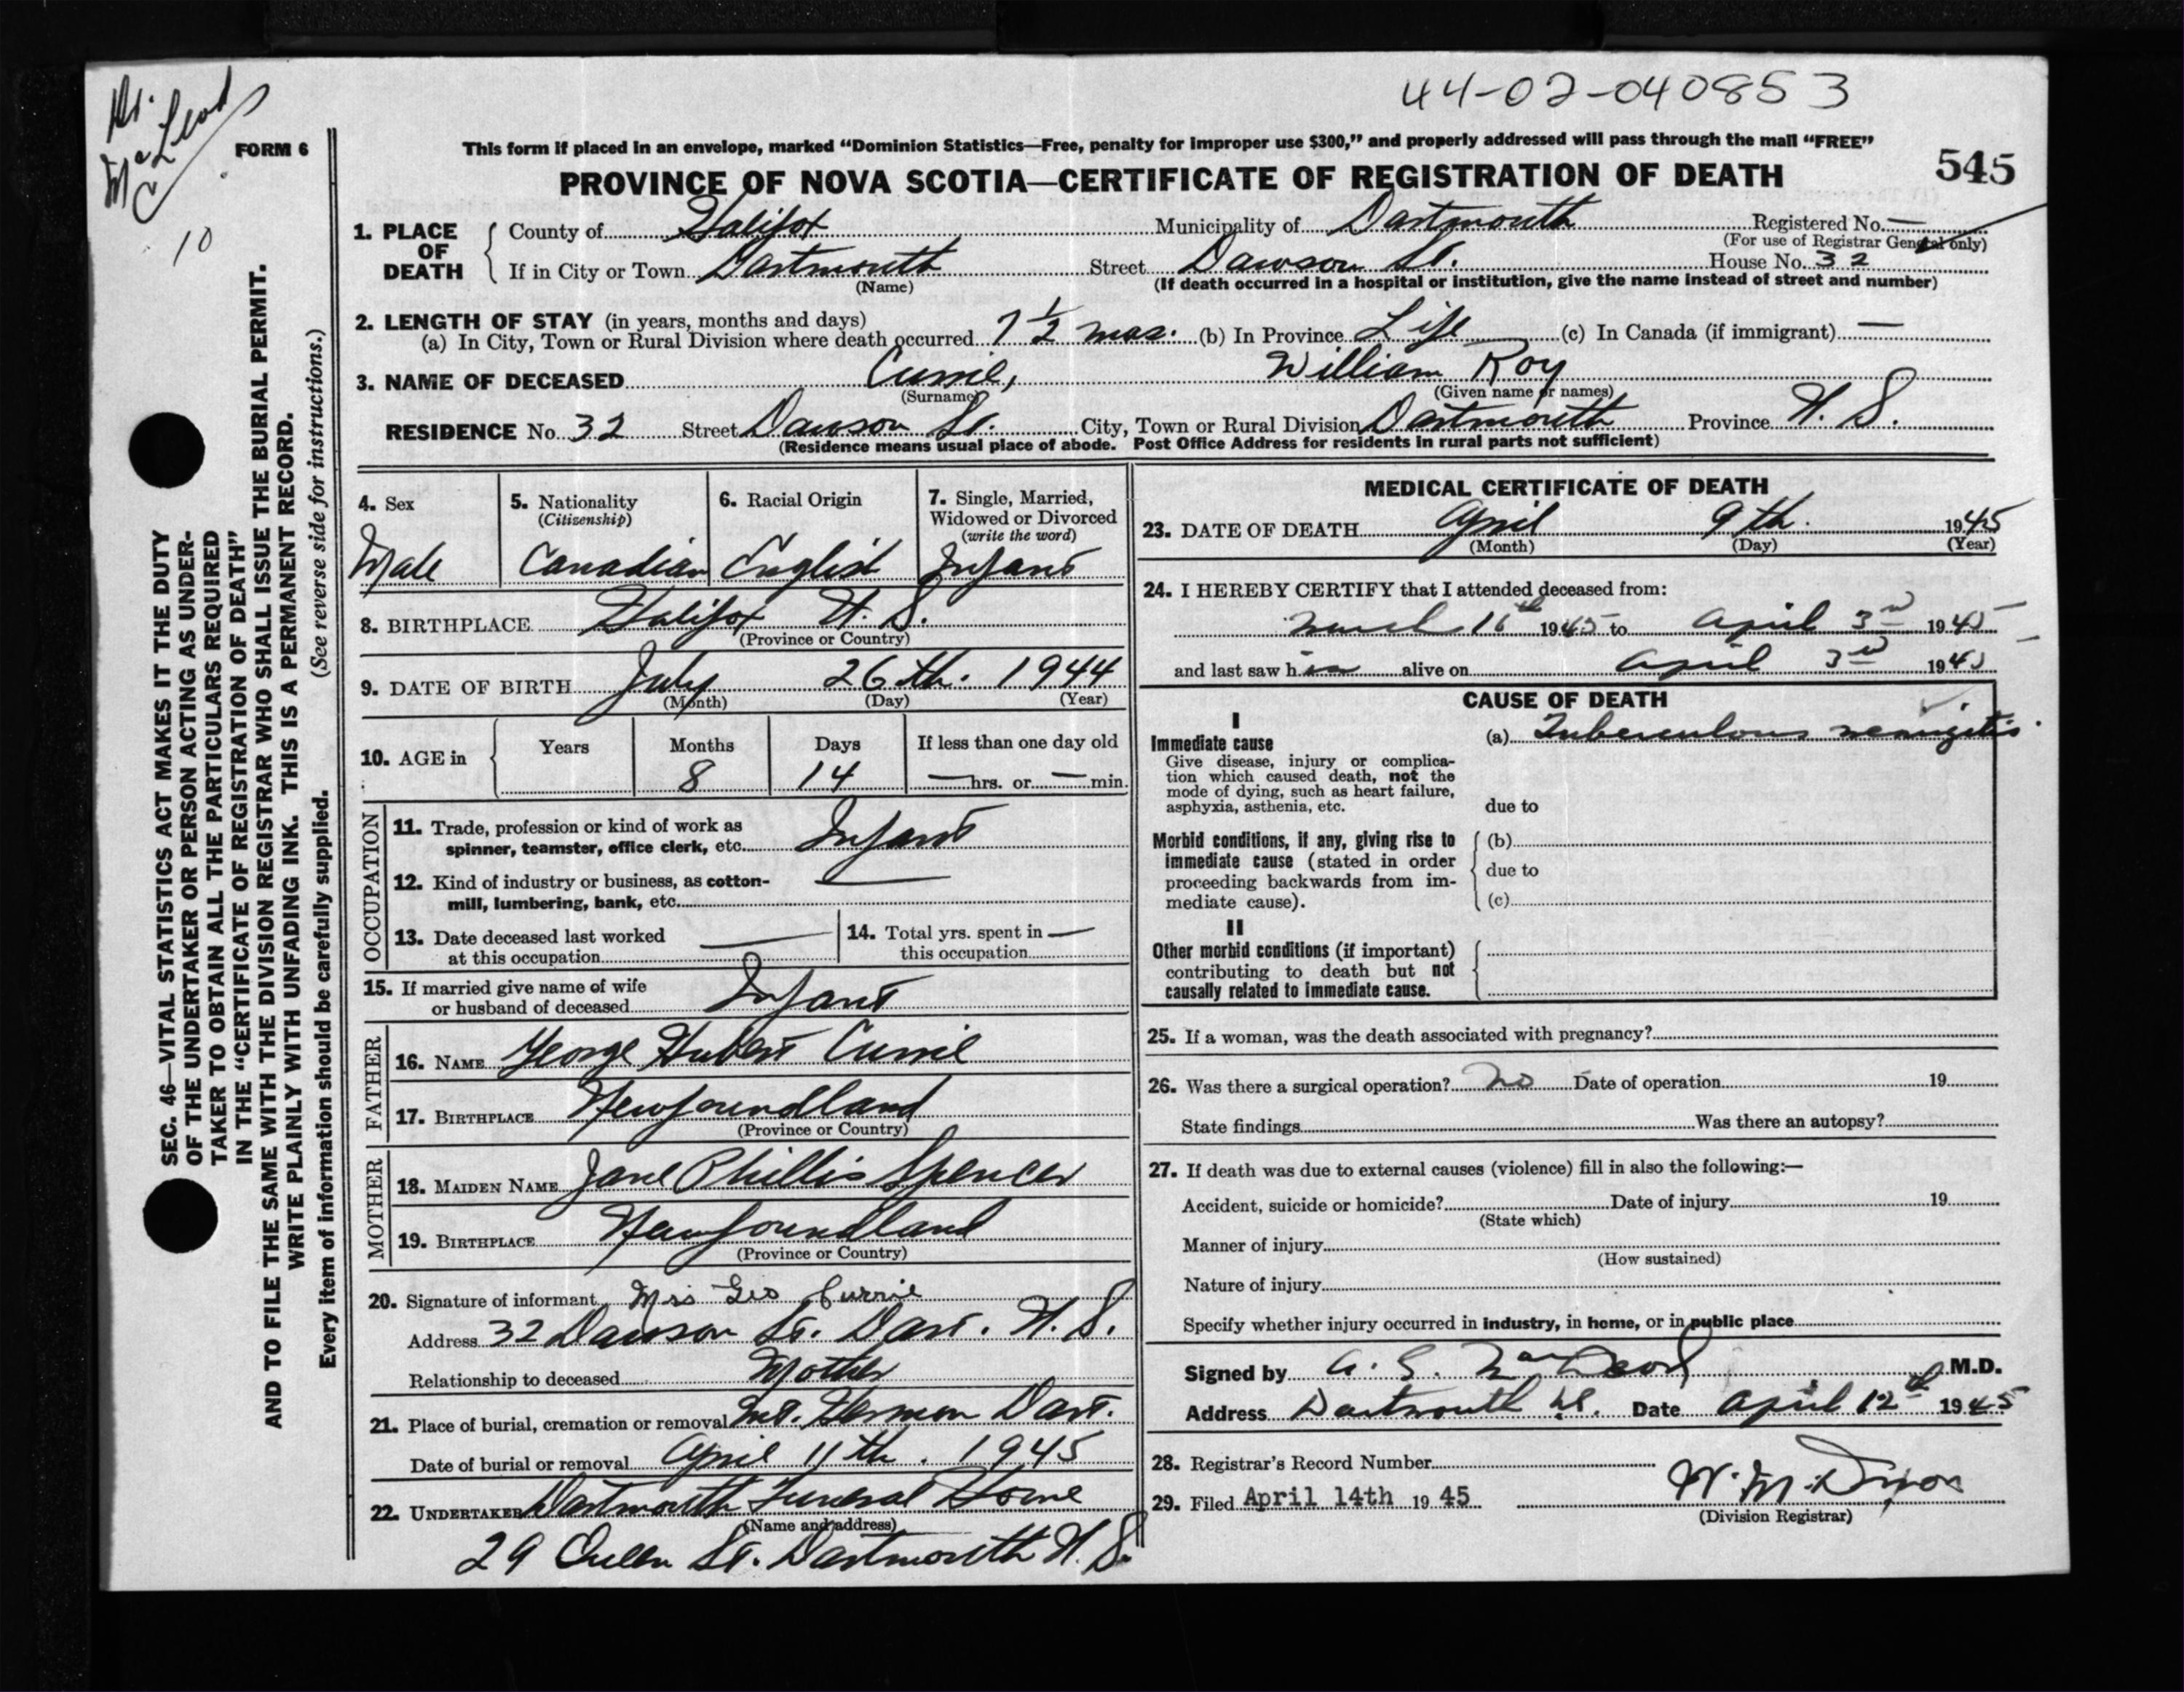 44-02-040853
Dr.
McLeod
10
FORM 6
This form if placed in an envelope, marked “Dominion Statistics—Free, penalty for improper use $300,” and properly addressed will pass through the mail “FREE”
545
PROVINCE OF NOVA SCOTIA—CERTIFICATE OF REGISTRATION OF DEATH
1. PLACE OF DEATH
County of Halifax Municipality of Dartmouth Registered No. —
(For use of Registrar General only)
If in City or Town Dartmouth Street Dawson St. House No. 32
(Name) (If death occurred in a hospital or institution, give the name instead of street and number)
2. LENGTH OF STAY (in years, months and days)
(a) In City, Town or Rural Division where death occurred 7 1/2 mos. (b) In Province Life (c) In Canada (if immigrant) —
3. NAME OF DECEASED Currie, William Roy
(Surname) (Given name or names)
RESIDENCE No. 32 Street Dawson St. City, Town or Rural Division Dartmouth Province N. S.
(Residence means usual place of abode. Post Office Address for residents in rural parts not sufficient)
4. Sex
Male
5. Nationality
(Citizenship)
Canadian
6. Racial Origin
English
7. Single, Married,
Widowed or Divorced
(write the word)
Infant
8. BIRTHPLACE Halifax N. S.
(Province or Country)
9. DATE OF BIRTH July 26th. 1944
(Month) (Day) (Year)
10. AGE in
Years Months Days If less than one day old
8 14 — hrs. or — min.
OCCUPATION
11. Trade, profession or kind of work as
spinner, teamster, office clerk, etc. Infant
12. Kind of industry or business, as cotton-
mill, lumbering, bank, etc. —
13. Date deceased last worked
at this occupation —
14. Total yrs. spent in —
this occupation
15. If married give name of wife
or husband of deceased Infant
FATHER
16. NAME George Hubert Currie
17. BIRTHPLACE Newfoundland
(Province or Country)
MOTHER
18. MAIDEN NAME Jane Phillis Spencer
19. BIRTHPLACE Newfoundland
(Province or Country)
20. Signature of informant Mrs Geo Currie
Address 32 Dawson St. Dart. N. S.
Relationship to deceased Mother
21. Place of burial, cremation or removal Mt. Hermon Dart.
Date of burial or removal April 11th. 1945
22. UNDERTAKER Dartmouth Funeral Home
(Name and address)
29 Queen St. Dartmouth N. S.
MEDICAL CERTIFICATE OF DEATH
23. DATE OF DEATH April 9th. 1945
(Month) (Day) (Year)
24. I HEREBY CERTIFY that I attended deceased from:
March 16th 1945 to April 3rd 1945
and last saw him alive on April 3rd 1945
CAUSE OF DEATH
I
Immediate cause
Give disease, injury or complica-
tion which caused death, not the
mode of dying, such as heart failure,
asphyxia, asthenia, etc.
(a) Tuberculous meningitis.
due to
Morbid conditions, if any, giving rise to
immediate cause (stated in order
proceeding backwards from im-
mediate cause).
(b)
due to
(c)
II
Other morbid conditions (if important)
contributing to death but not
causally related to immediate cause.
25. If a woman, was the death associated with pregnancy?
26. Was there a surgical operation? no Date of operation 19
State findings Was there an autopsy?
27. If death was due to external causes (violence) fill in also the following:—
Accident, suicide or homicide? Date of injury 19
(State which)
Manner of injury
(How sustained)
Nature of injury
Specify whether injury occurred in industry, in home, or in public place
Signed by M.D.
Address Dartmouth N.S. Date April 12th 1945
28. Registrar's Record Number
29. Filed April 14th 1945
(Division Registrar)
SEC. 46—VITAL STATISTICS ACT MAKES IT THE DUTY
OF THE UNDERTAKER OR PERSON ACTING AS UNDER-
TAKER TO OBTAIN ALL THE PARTICULARS REQUIRED
IN THE “CERTIFICATE OF REGISTRATION OF DEATH”
AND TO FILE THE SAME WITH THE DIVISION REGISTRAR WHO SHALL ISSUE THE BURIAL PERMIT.
WRITE PLAINLY WITH UNFADING INK. THIS IS A PERMANENT RECORD.
Every item of information should be carefully supplied. (See reverse side for instructions.)